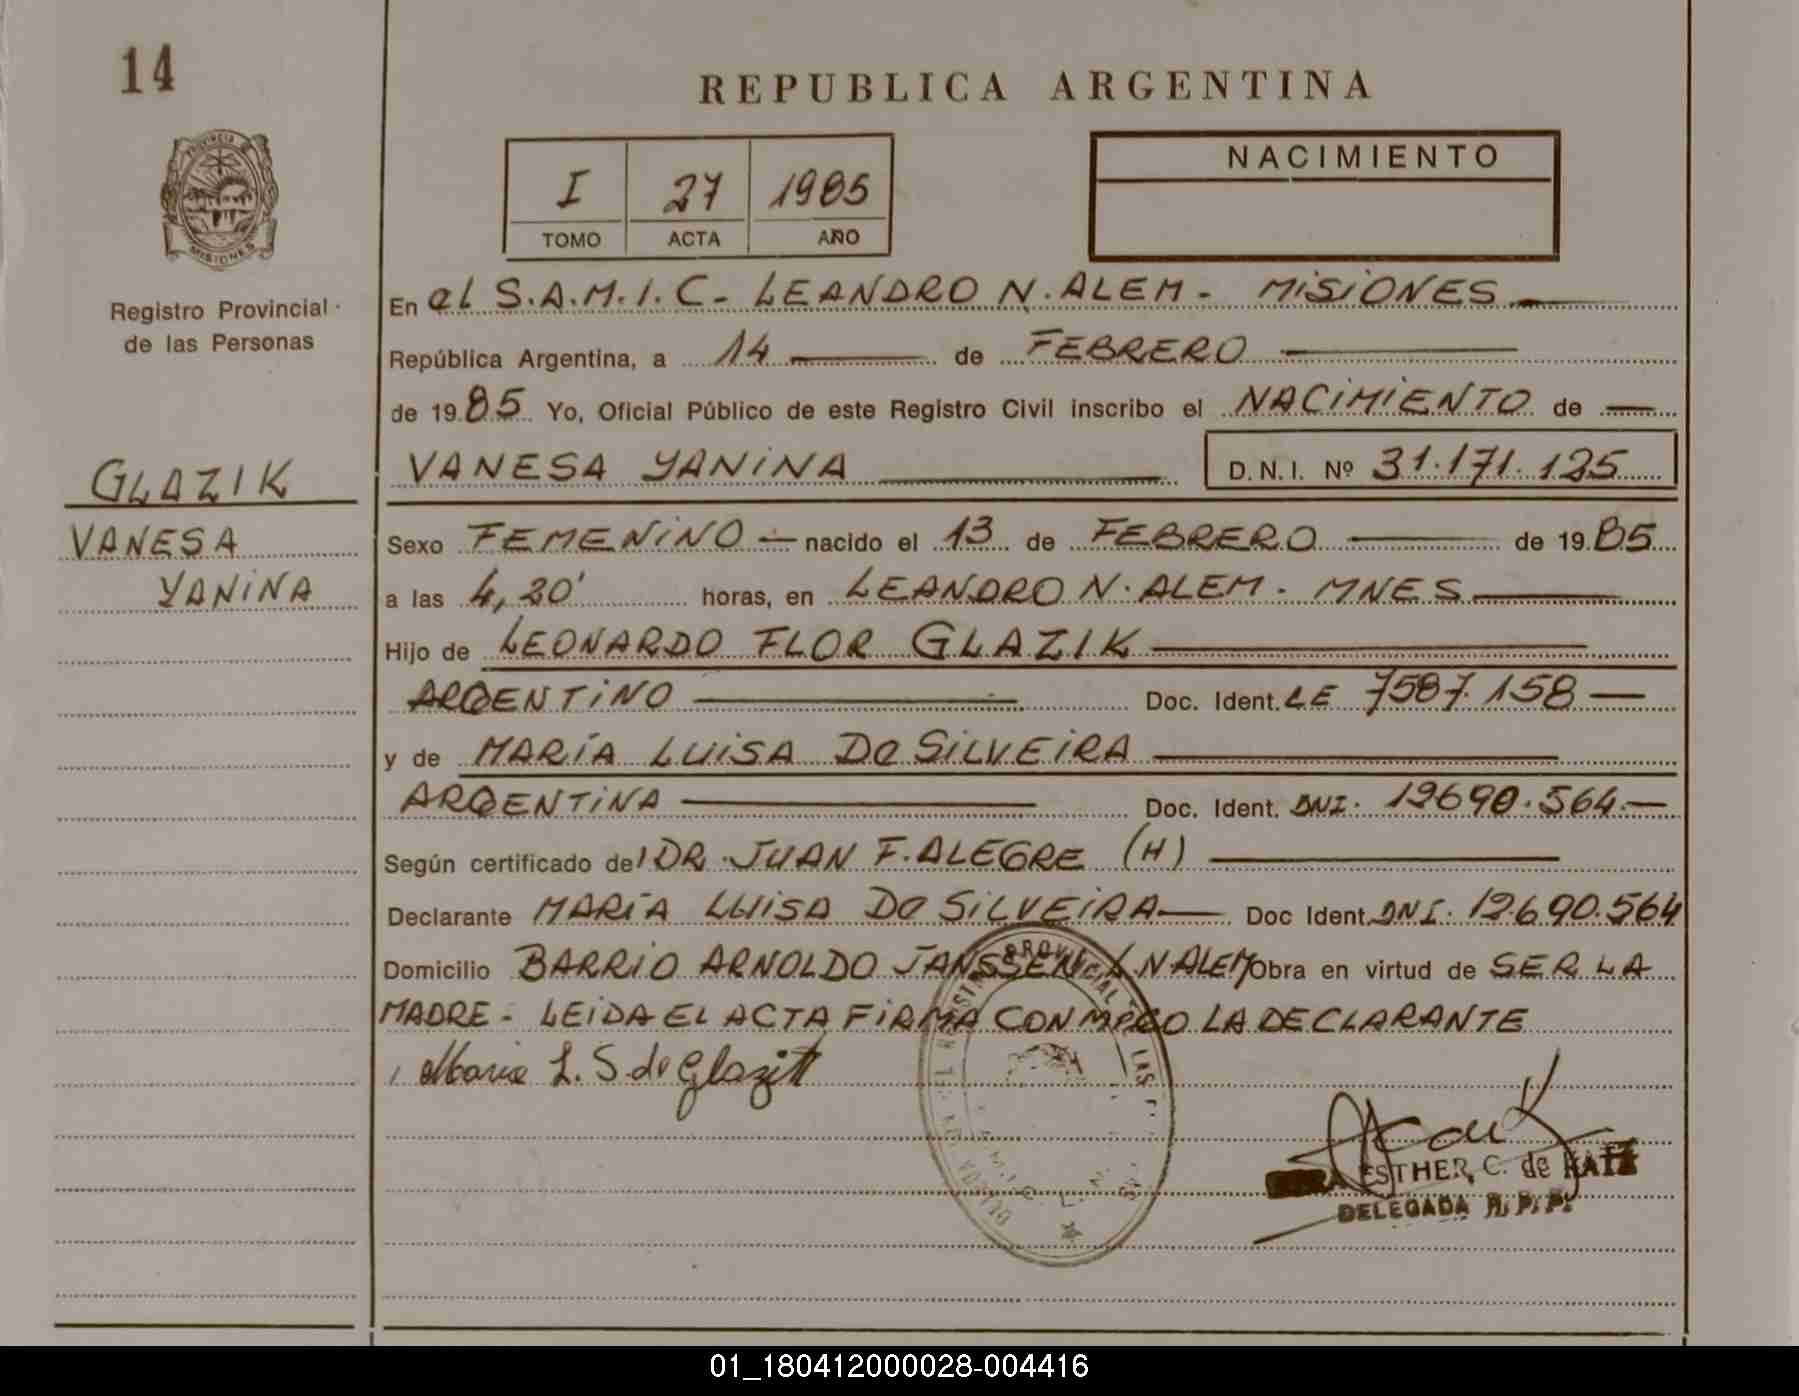 14
REPUBLICA ARGENTINA
PROVINCIA
MISIONES
I 27 1985
TOMO ACTA AÑO
NACIMIENTO
Registro Provincial
de las Personas
En el S.A.M.I.C- LEANDRO N. ALEM - MISIONES
República Argentina, a 14 de FEBRERO
de 1985 Yo, Oficial Público de este Registro Civil inscribo el NACIMIENTO de
VANESA YANINA D.N.I. Nº 31.171.125
GLAZIK
VANESA
YANINA
Sexo FEMENINO nacido el 13 de FEBRERO de 1985
a las 4,20' horas, en LEANDRO N. ALEM. MNES
Hijo de LEONARDO FLOR GLAZIK
ARGENTINO Doc. Ident. LE 7587.158
y de MARÍA LUISA DO SILVEIRA
ARGENTINA Doc. Ident. DNI. 12690.564.
Según certificado del DR. JUAN F. ALEGRE (H)
Declarante MARÍA LUISA DO SILVEIRA Doc Ident. DNI. 12.690.564
Domicilio BARRIO ARNOLDO JANSSEN L N ALEM Obra en virtud de SER LA
MADRE - LEIDA EL ACTA FIRMA CONMIGO LA DECLARANTE
Maria L. S de Glazik
PROVINCIAL DE LAS
ESTHER C. de KATZ
DELEGADA R.P.P.
01_180412000028-004416